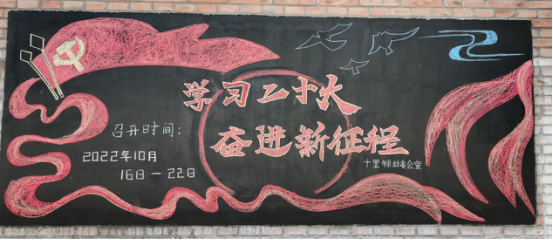 学习二十大
奋进新征程
召开时间：
2022年10月
16日－22日
十里铺村委会宣